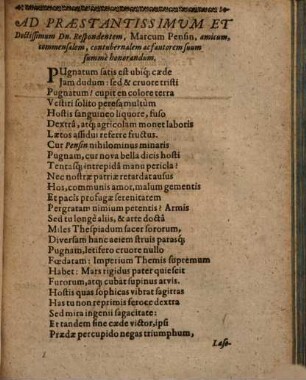 AD PRÆSTANTISSIMUM ET
Doctissimum Dn. Respondentem, Marcum Pensin, amicum,
commensalem, contubernalem ac fautorem suum
summè honorandum.
PUgnatum satis est ubiq; cæde
Jam dudum: sed & cruore tristi
Pugnatum? cupit en colore terra
Vestiri solito peresa multùm
Hostis sanguineo liquore, fuso
Dextrâ, atq; agricolam monet laboris
Lætos assidui referre fructus.
Cur Pensin nihilominus minaris
Pugnam, cur nova bella dicis hosti
Tentasq; intrepidâ manu pericla?
Nec nostræ patriæ retardat ausus
Hos, communis amor, malum gementis
Et pacis profugæ serenitatem
Pergratam nimium petentis? Armis
Sed tu longè aliis, & arte doctâ
Miles Thespiadum sacer sororum,
Diversam hanc aciem struis parasq;
Pugnam, letifero cruore nullo
Fœdatam: Imperium Themis supremum
Habet: Mars tigidus pater quiescit
Furorum, atq; cubat supinus arvis.
Hostis quas sophicas vibrat sagittas
Has tu non reprimis feroce dextra
Sed mira ingenii sagacitate:
Et tandem fine cæde victor, ipsi
Prædæ percupido negas triumphum,
Laso-